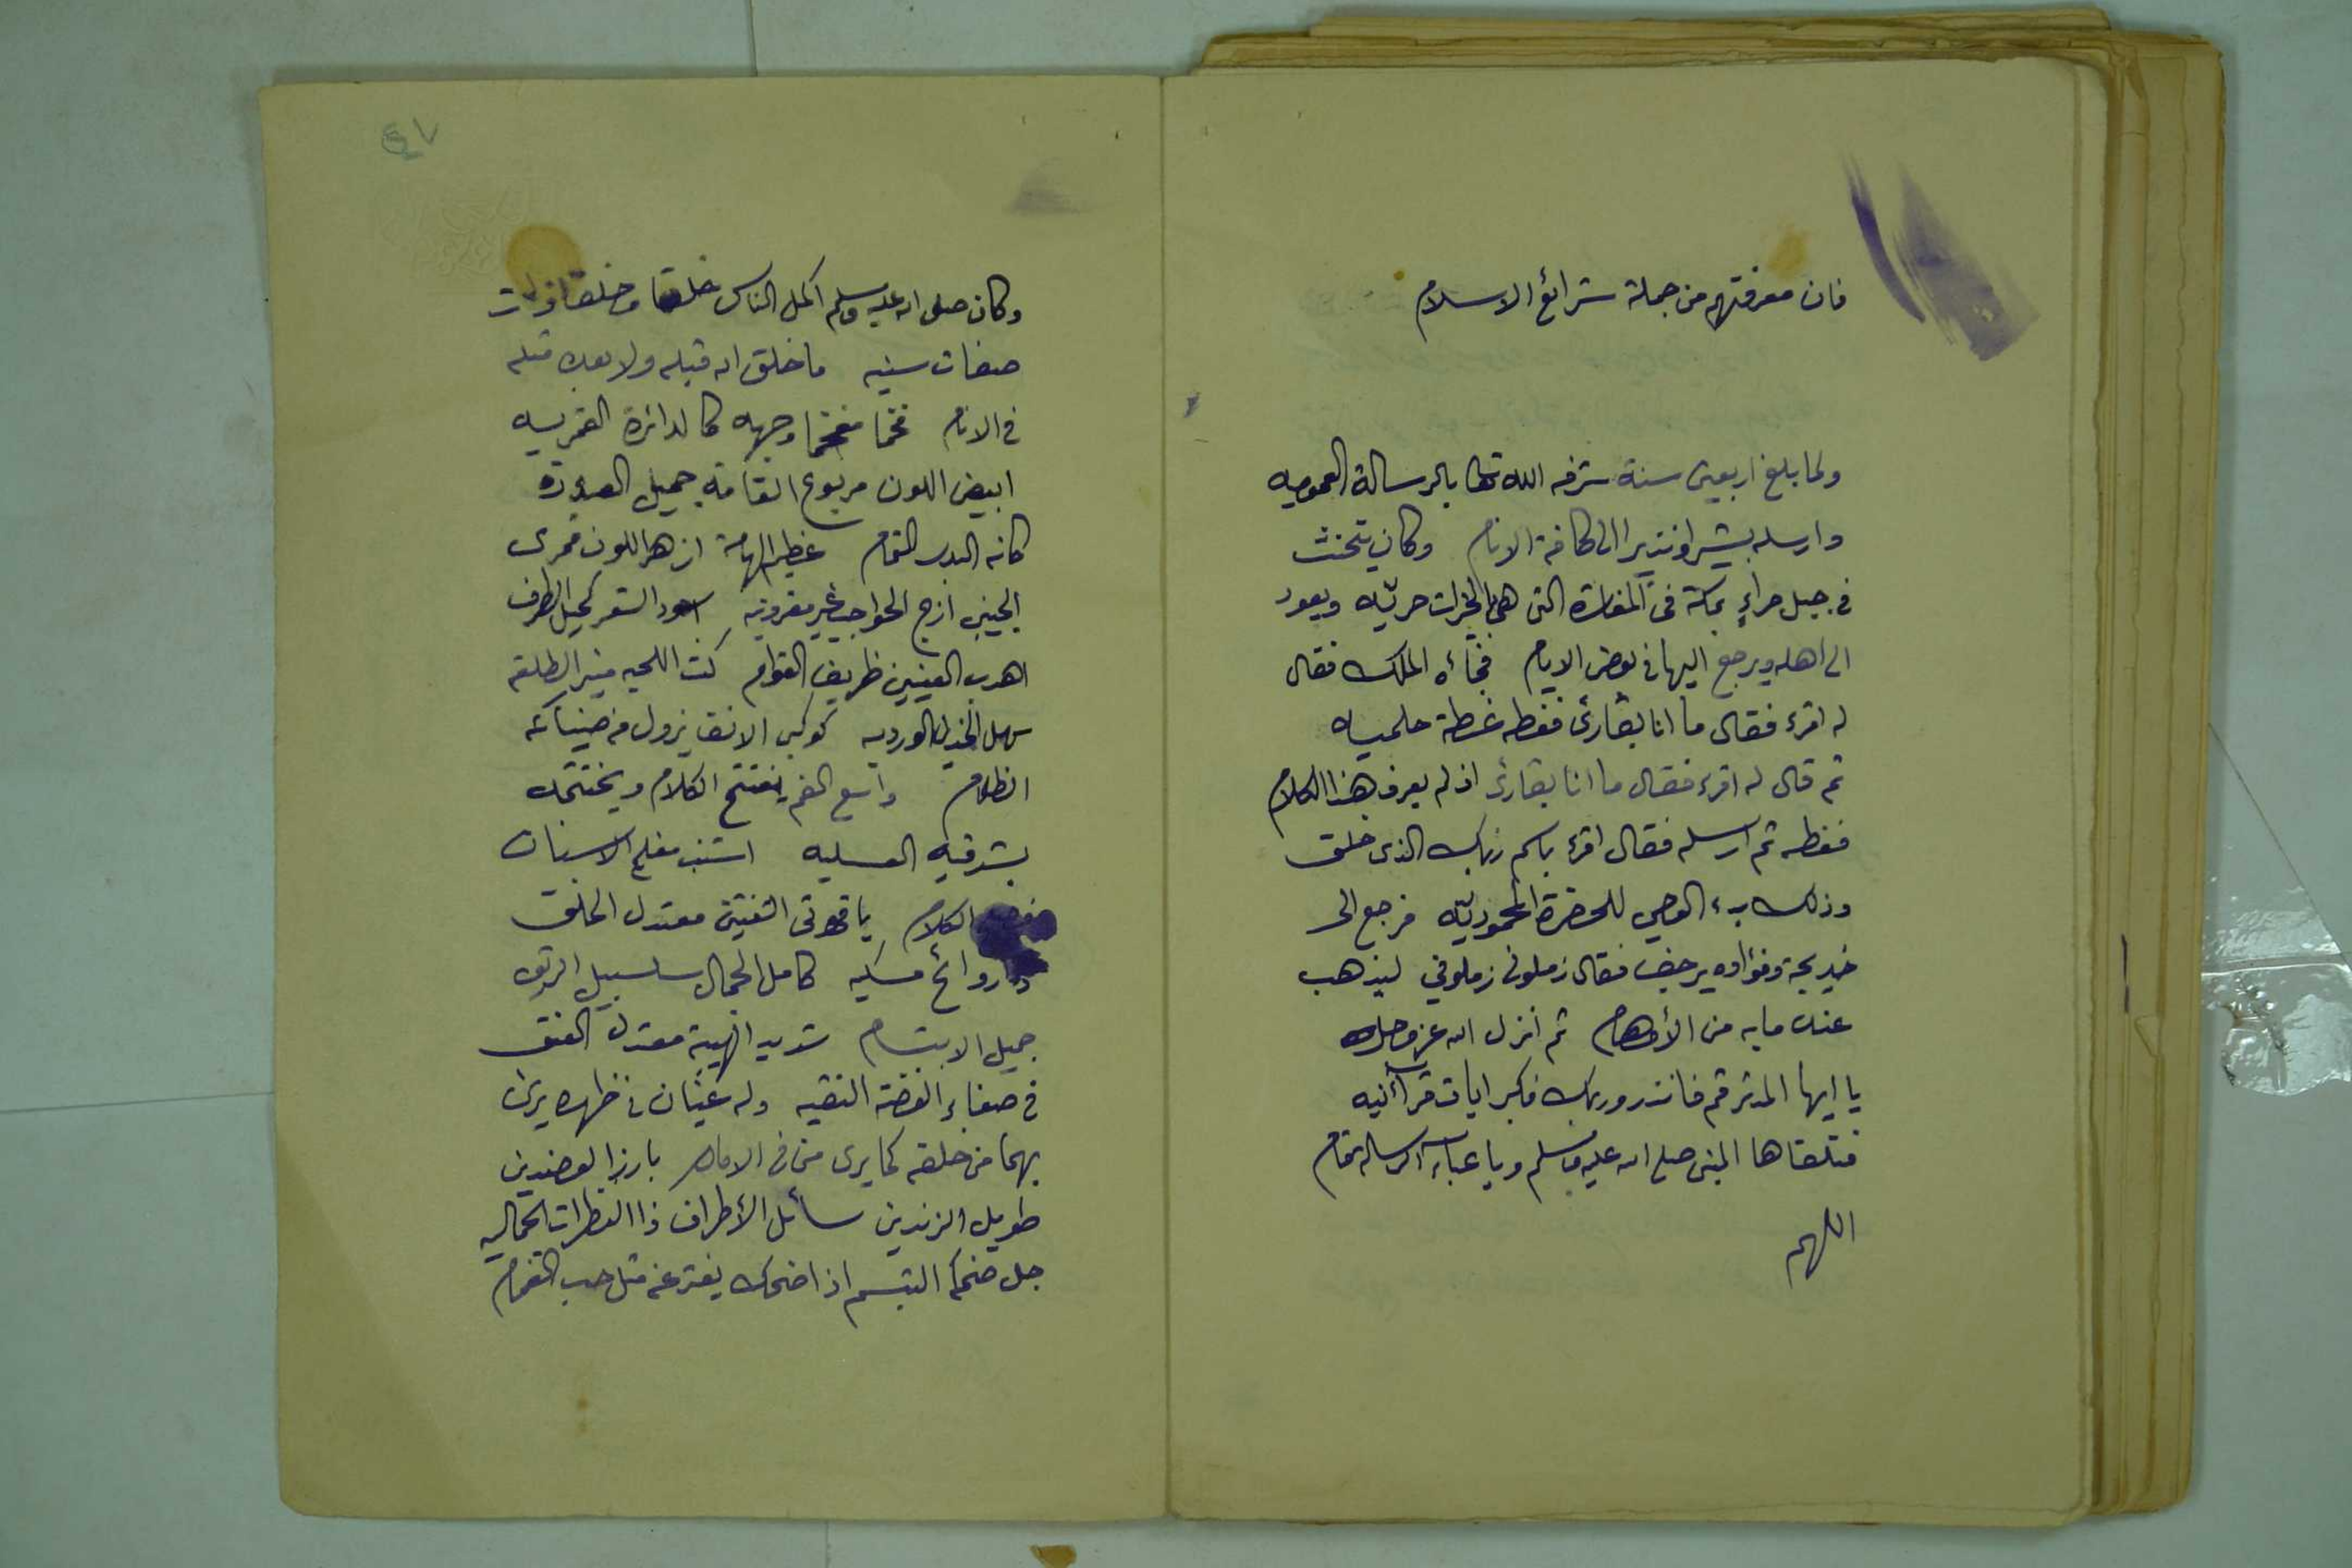 فان معرفتهم من جملة شرائع الاسلام
ولما بلغ اربعين سنة شرفه الله تعا بالرسالة العموميه
وارسله بشيرا ونذيرا الى كافة الانام وكان يتحنث
في جبل حراء بمكة فى المغارة التى هى حريّه ويعود
الى اهله ويرجع اليها في بعض الايام فجاءه الملك فقال
له اقرء فقال ما انا بقارئ فغطه غطة حلميه
ثم قال له اقرء فقال ما انا بقارئ اذ لم يعرف هذا الكلام
فغطه ثم ارسله فقال اقرء باسم ربك الذى خلق
وذلك بدء الوحي للحضرة المحموديّه فرجع الى
خديجة وفؤاده يرجف فقال زملونى زملوني ليذهب
عنه مابه من الأوهام ثم انزل الله عز وجل
يا ايها المدثر قم فانذر وربك فكبر ايات قرآنيه
فتلقاها النبى صلى الله عليه وسلم الرسالة قام
اللهم
٤٧
وكان صلى الله عليه وسلم اكمل الناس خلقا وخلقا ذات
صفات سنيه ما خلق الله قبله ولا بعده مثله
في الانام فخما مفخما وجهه كالدائرة القمريه
ابيض اللون مربوع القامه جميل الصورة
كانه البدر التمام عظيم الهامة ازهر اللون قمرى
الجبين ازج الحواجب غير مقرونيه اسود الشعر كحيل الطرف
اهدب العينين ظريف القوام كث اللحيه منير الطلعة
سهل الخدين الورديه كوكبى الانف يزول من ضيائه
الظلام واسع الفم يفتتح الكلام ويختتمه
بشدقيه العسليه اشنب مفلج الاسنان
الكلام ياقوتى الشفتين معتدل الخلق
ذا روائح مسكيه كامل الجمال سلسبيل الريق
جميل الابتسام شديد الهيبة معتدل العنق
في صفاء الفضة النقيه وله عينان في ظهره يرى
بهما من خلفه كما يرى من في الامام بارز العضدين
طويل الزندين سائل الأطراف ذا النظرات الجماليه
جل ضحكه التبسم اذا ضحك يفتر عن مثل حب الغمام